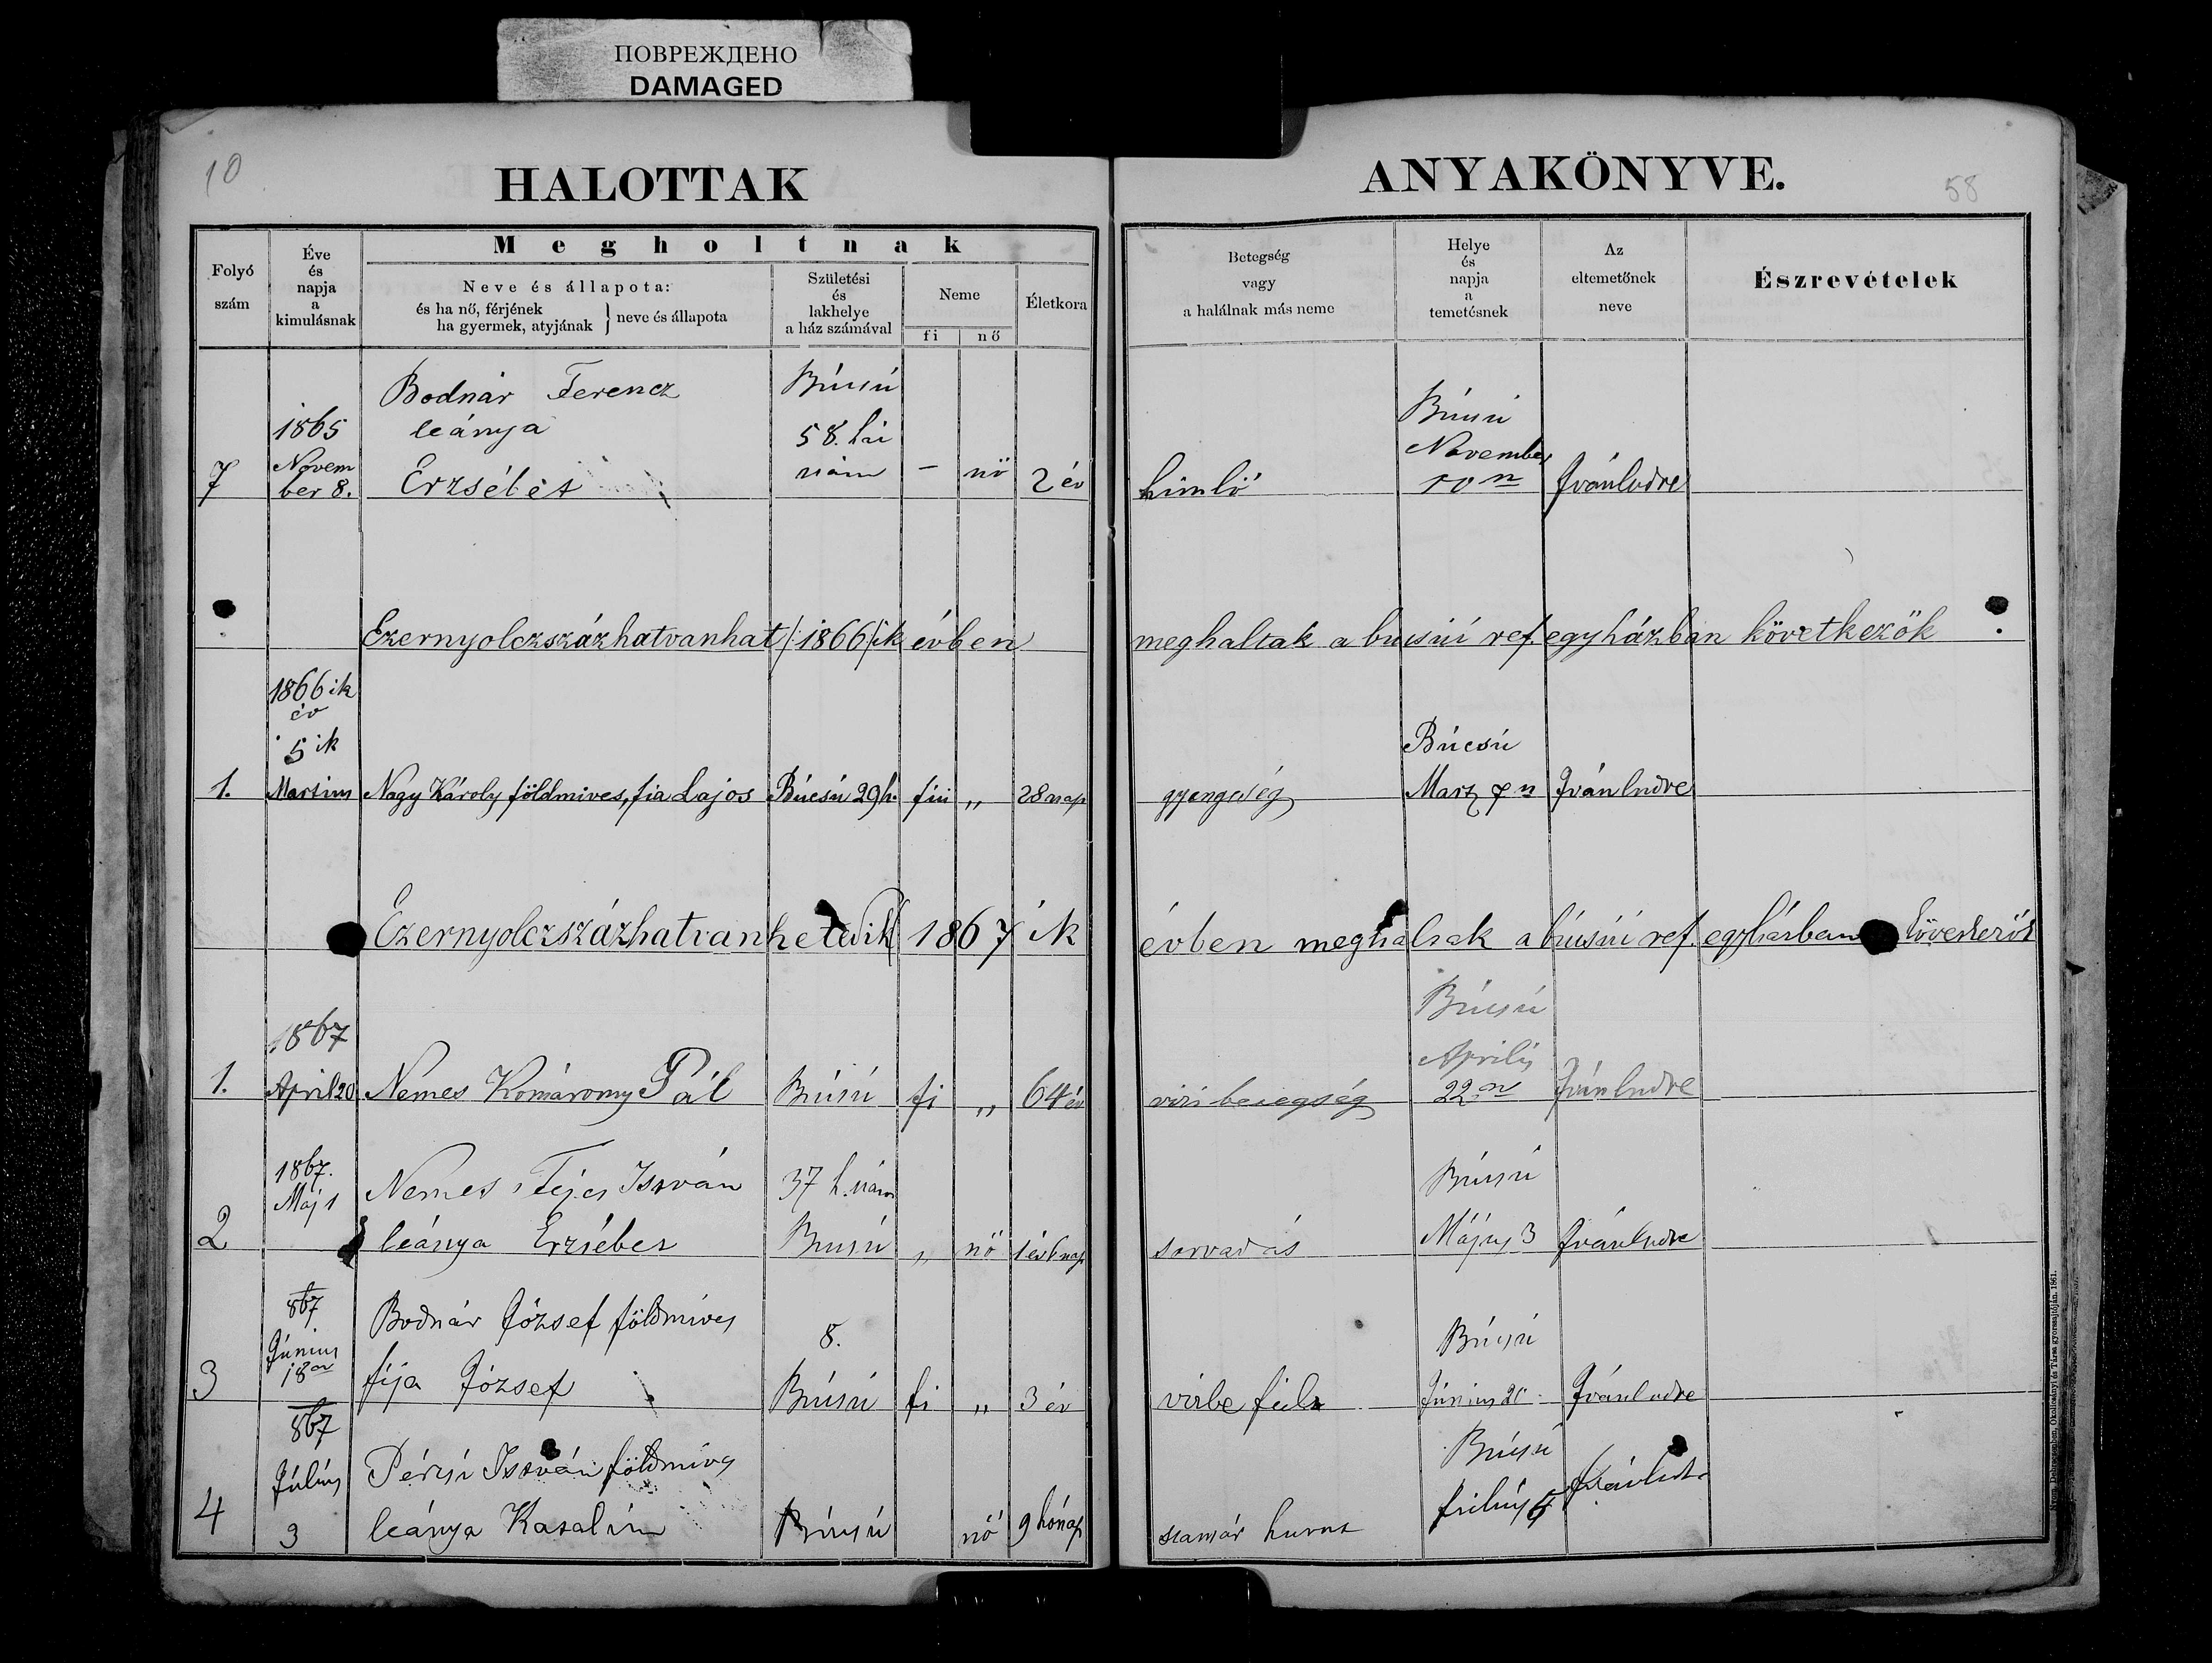 ПОВРЕЖДЕНО
DAMAGED
10
HALOTTAK
ANYAKÖNYVE.
58
Folyó szám
Éve és napja a kimulásnak
Megholtnak
Neve és állapota:
és ha nő, férjének
ha gyermek, atyjának } neve és állapota
Születési és lakhelye a ház számával
Neme
fi
nő
Életkora
Betegség vagy a halálnak más neme
Helye és napja a temetésnek
Az eltemetőnek neve
Észrevételek
7
1865
Novem
ber 8.
Bodnár Ferencz
leánya
Erzsébet
Búcsú
58. há
szám
–
nő
2 év
himlő
Búcsú
November
10n
Ivánludre
Ezernyolczszázhatvanhat /:1866/ik évben meghaltak a bucsúi ref. egyházban következők
1.
1866ik
év
5ik
Martius
Nagy Károly földmives, fia Lajos
Búcsú 29 h.
fiú
„
28 nap
gyengeség
Búcsú
Marz 7n
Ivánludre
Ezernyolczszázhatvanhetedik 1867ik évben meghaltak a búcsúi ref. egyházban következők
1.
1867
April 20
Nemes Komáromy Pál
Búcsú
fi
„
64 év
vizi betegség
Búcsú
Aprilis
22n
Ivánludre
2
1867.
Máj 1
Nemes Fejes István
leánya Erzsébet
37 h. szám
Búcsú
„
nő
sorvadás
Búcsú
Május 3
Ivánludre
3
867
Június
18n
Bodnár József földmíves
fija József
8.
Búcsú
fi
„
3 év
vizbe fúlt
Búcsú
Június 20
Ivánludre
4
867
Július
3
István földmíves
leánya Katalin
Búcsú
nő
9 hónap
szamár hurut
Búcsú
Július
Nyom. Debreczenben, Okolicsányi és Társa gyorssajtóján. 1861.